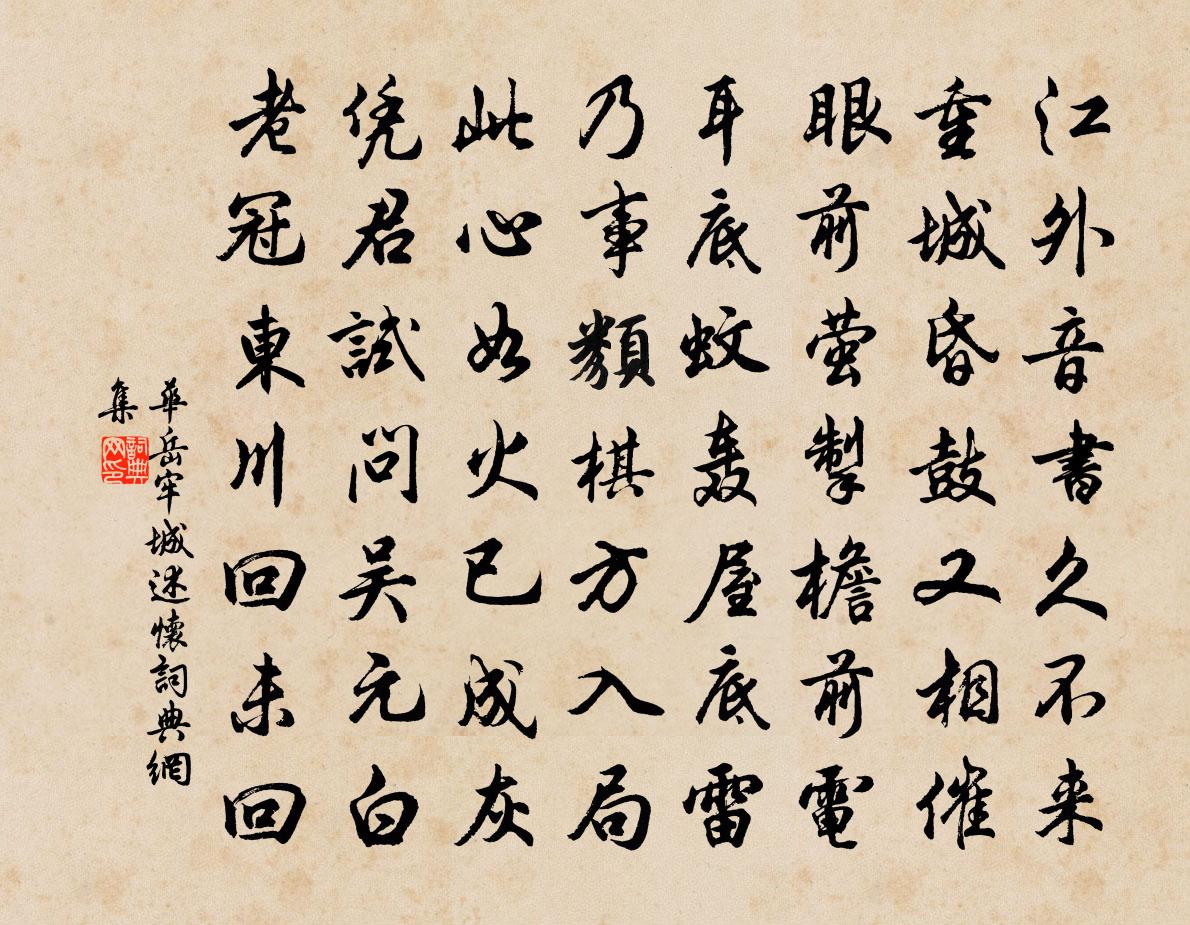 江外音書久不来
重城昏鼓又相催
眼前萤掣檐前電
耳底蚊轰屋底雷
乃事類棋方入局
此心如火已成灰
凭君試問吴元白
老冠東川回未回
華岳牢城述懷詞典網
集
詞典
网印